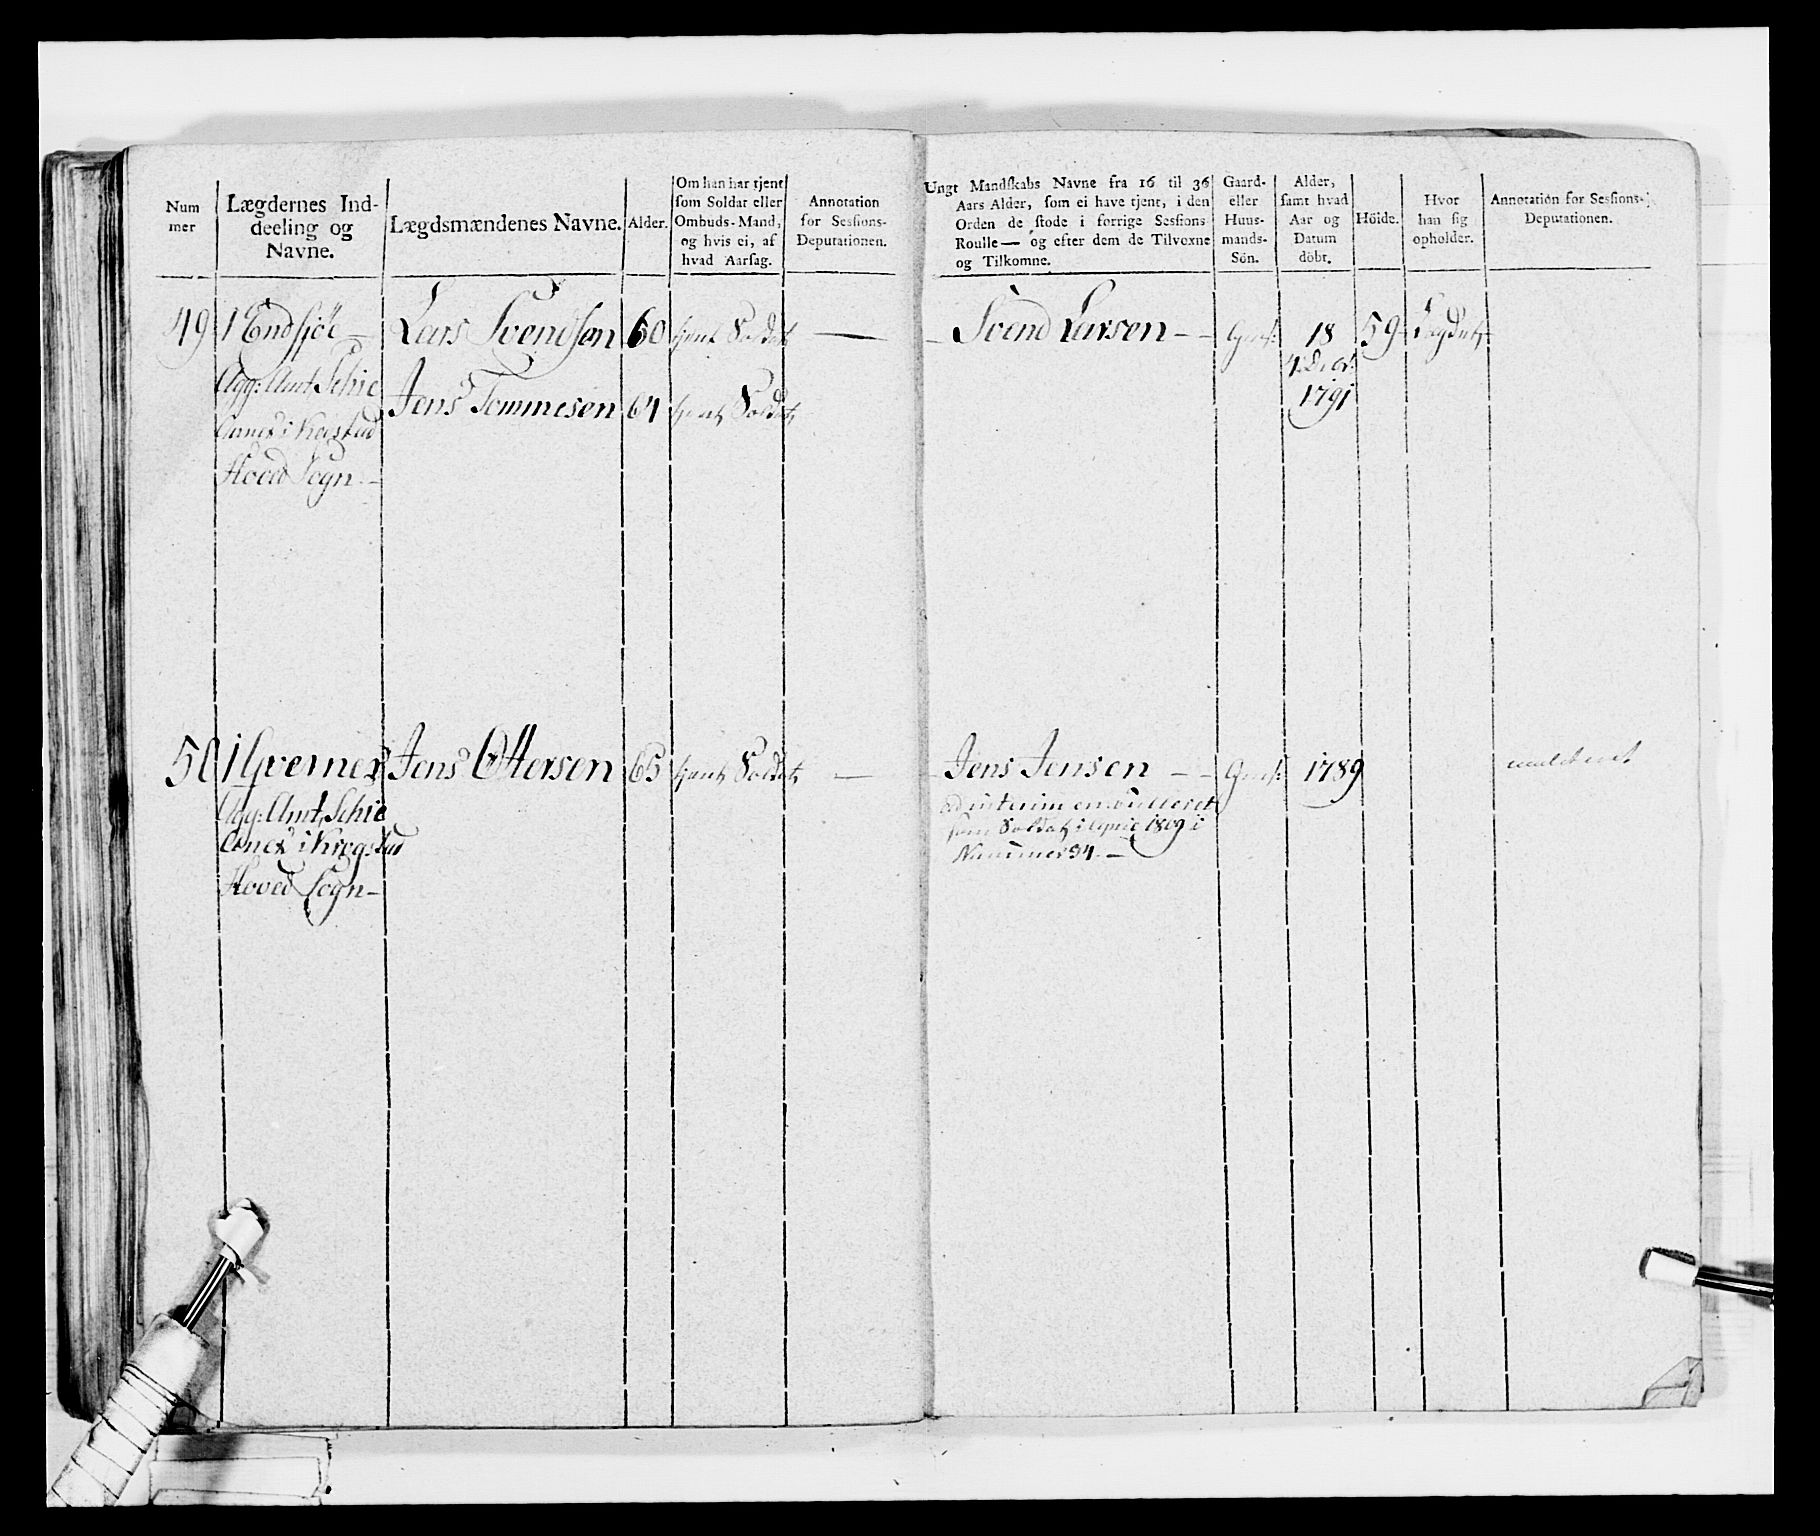 Num
mer
Lægdernes Ind-
deeling og
Navne.
Lægdsmændenes Navne.
Alder.
Om han har tjent
som Soldat eller
Ombuds-Mand,
og hvis ei, af
hvad Aarsag.
Annotation
for Sessions-
Deputationen.
Ungt Mandskabs Navne fra 16 til 36
Aars Alder, som ei have tjent, i den
Orden de stode i forrige Sessions-
Roulle — og efter dem de Tilvoxne
og Tilkomne.
Gaard-
eller
Huus-
mands-
Sön.
Alder,
samt hvad
Aar og
Datum
döbt.
Höide.
Hvor
han sig
opholder.
Annotation for Sessions-
Deputationen.
49 1 Endsjöe — Lars Svendsen 60 tjent Soldat —
Agg: Amt, Schie
i Kregstad
Hoved Sogn —
Jens Tommesen 64 tjent Soldat
— Svend Larsen — 18 59 Lægdet
4 Decr:
1791
50 1 Jens Ottersen 65 tjent Soldat —
Agg: Amt, Schie
i Kregstad
Hoved Sogn —
— Jens Jensen — 1789
ad interim enroulleret
som Soldat i 1809 i
Nummer 34. —